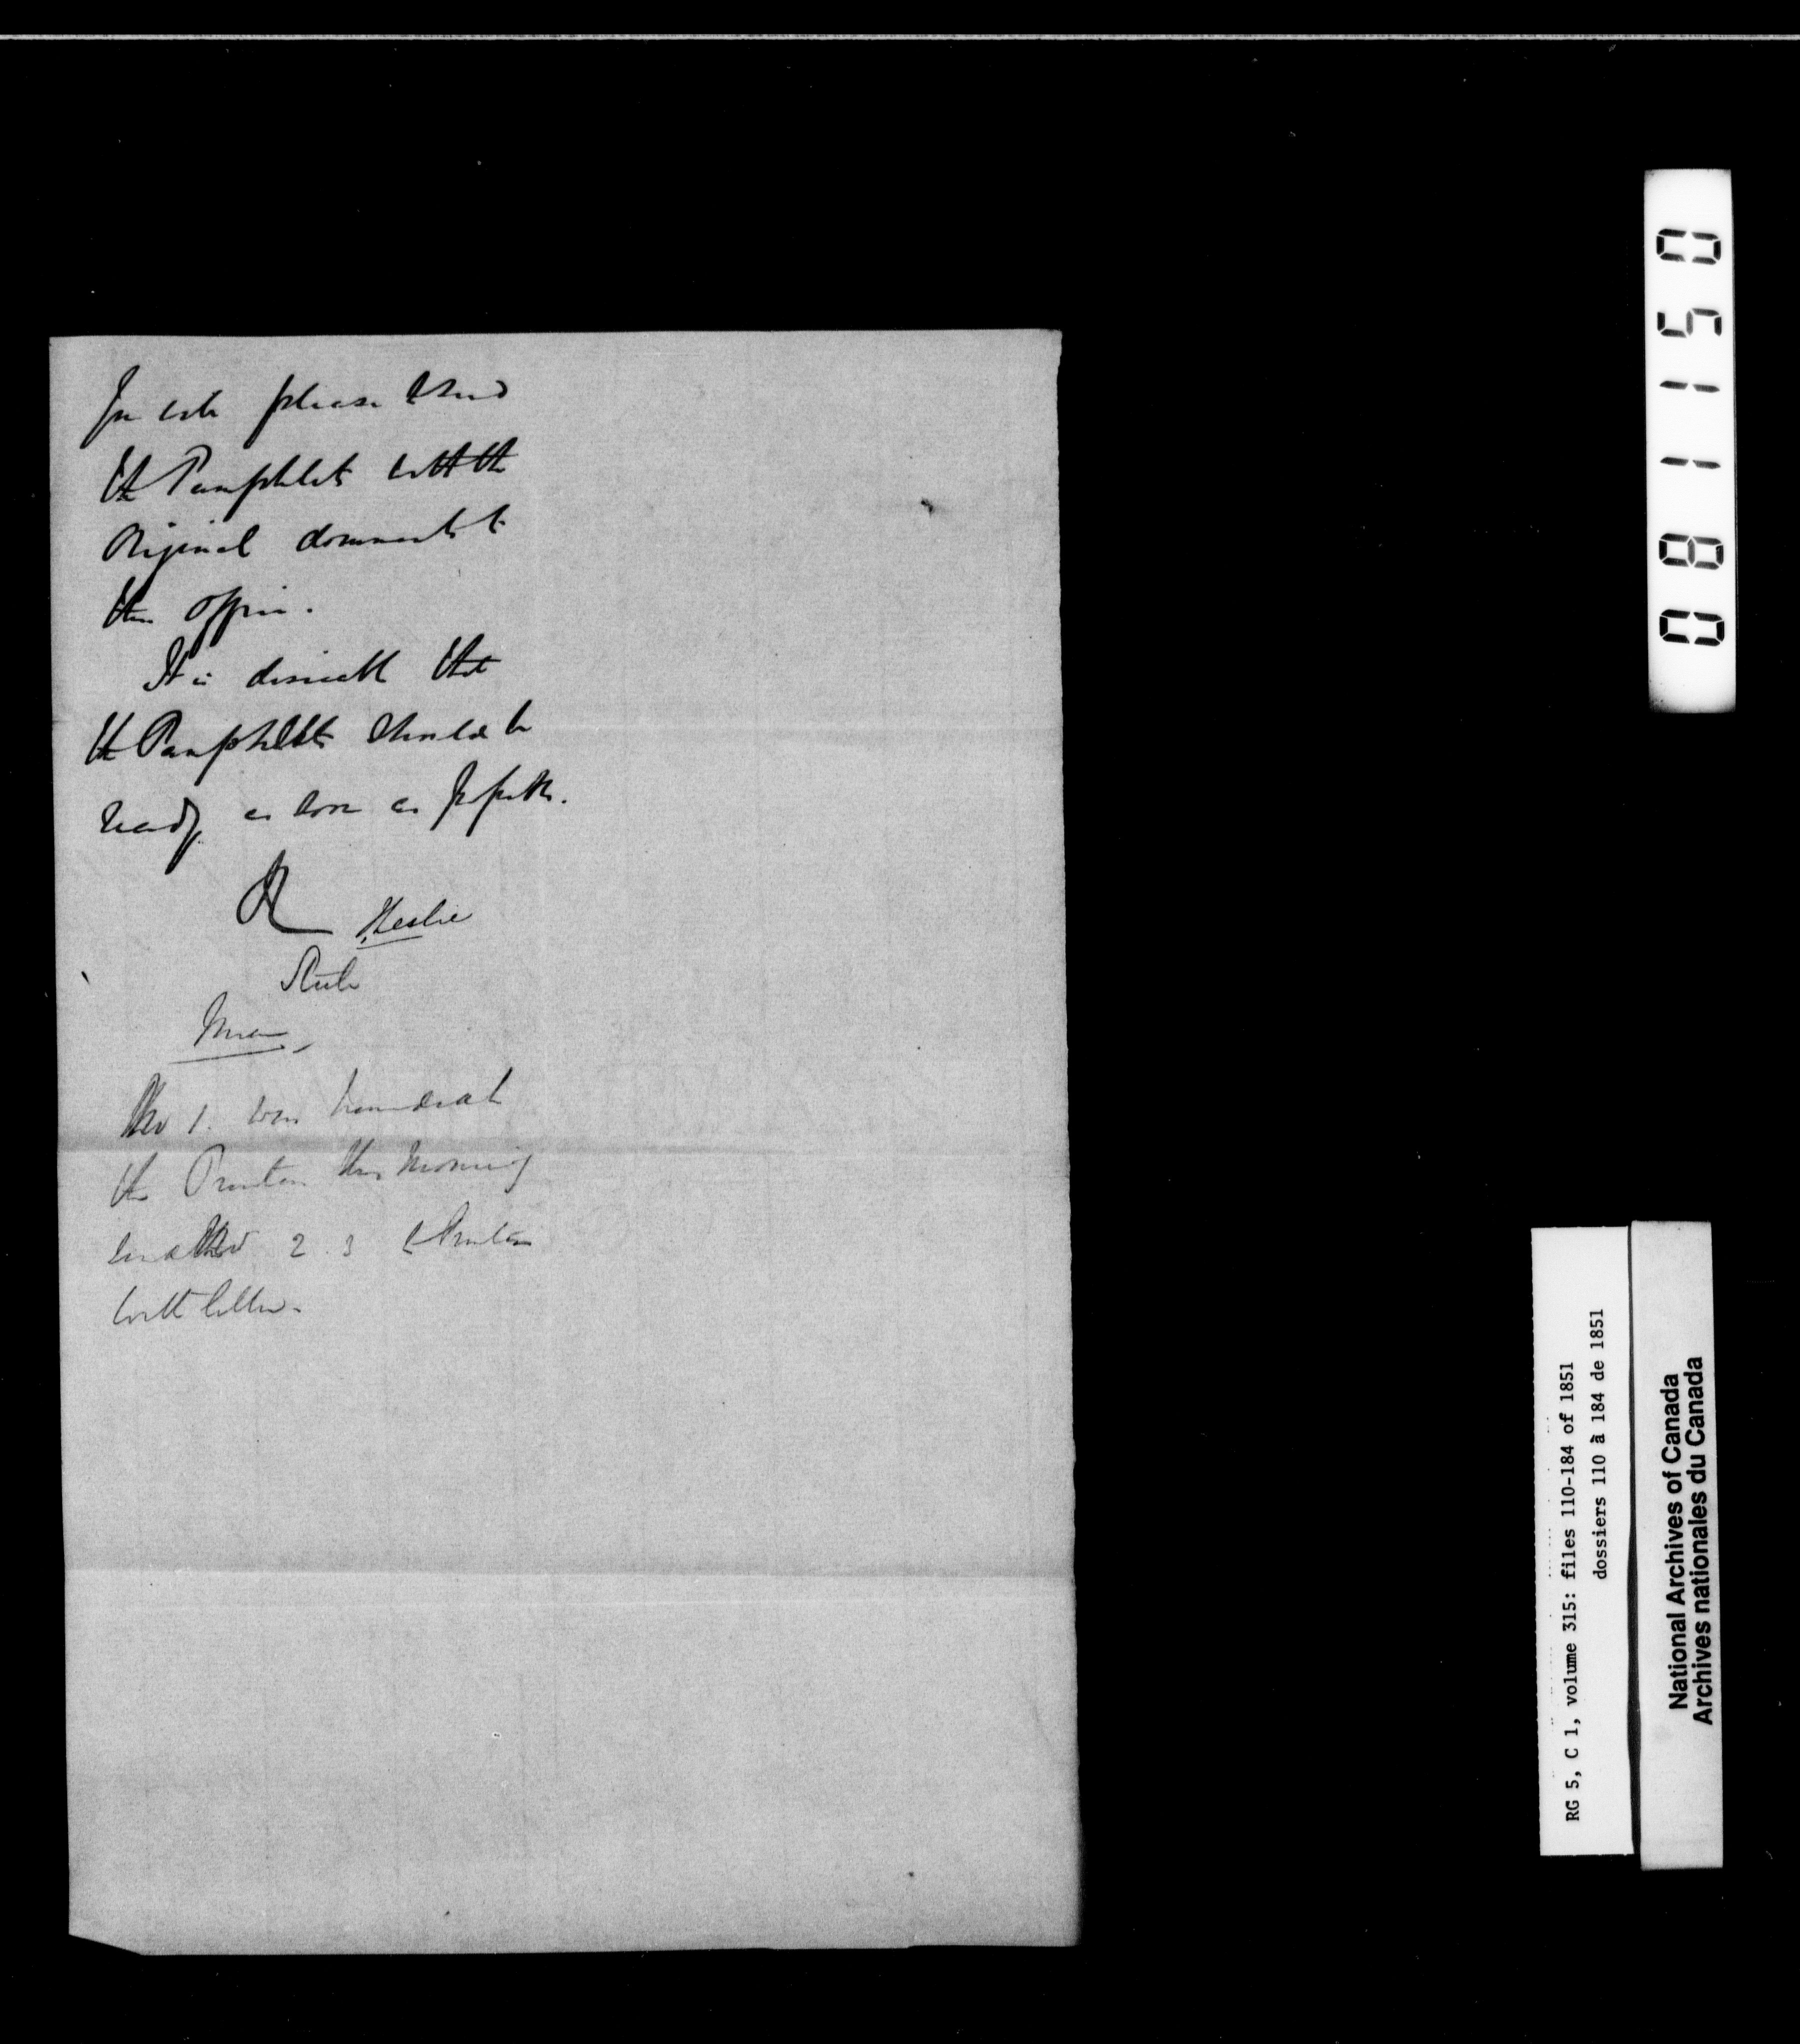 You will please send
the Pamphlets with the
original documents to
this office.
It is desirable that
the Pamphlets should be
ready as soon as possible.
J Leslie
Mem
No 1. was handed
the Printer this morning
and No 2. 3 to Printer
with letter.
081150
RG 5, C 1, volume 315: files 110-184 of 1851
dossiers 110 à 184 de 1851
National Archives of Canada
Archives nationales du Canada